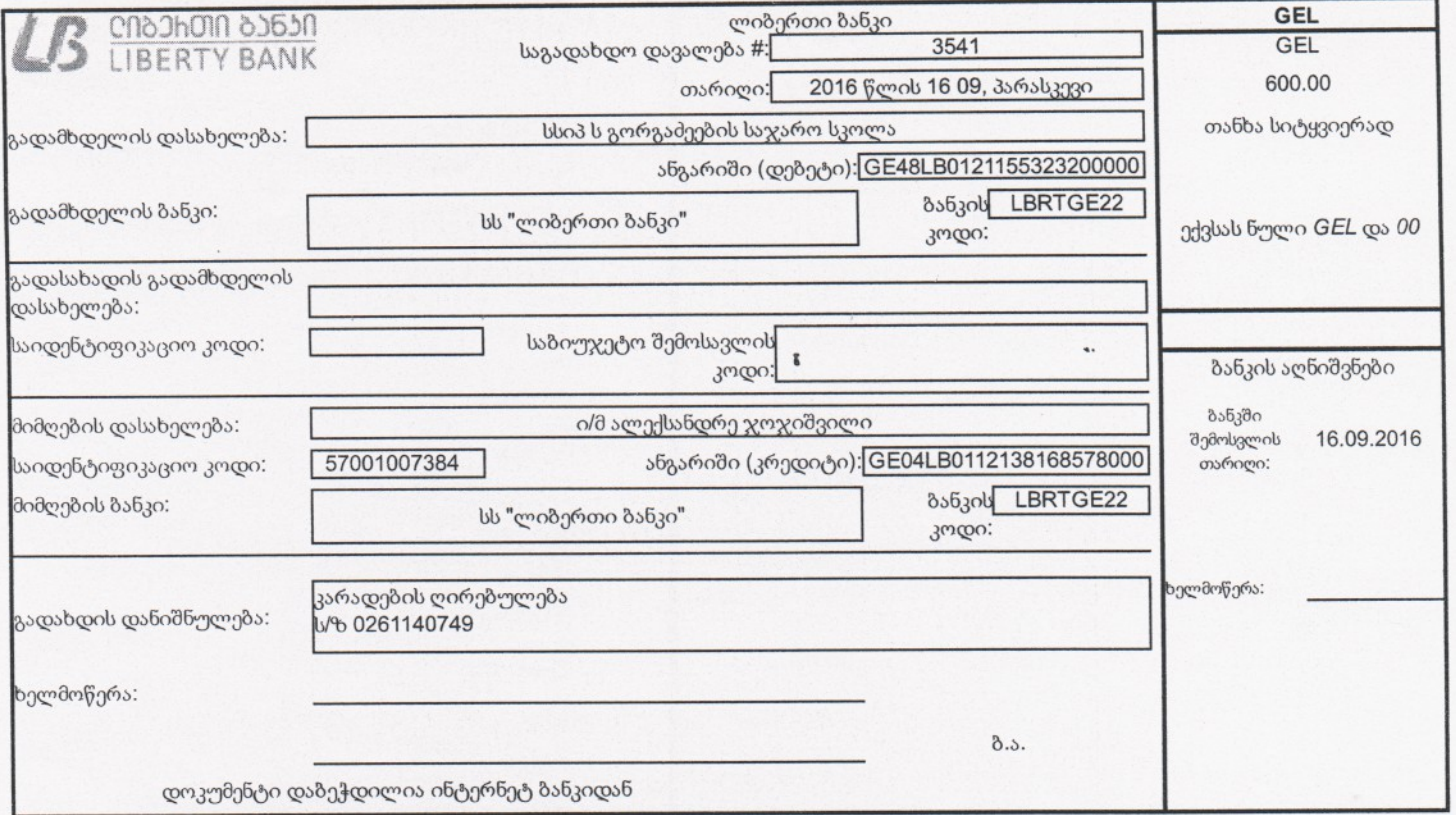 ლიბერთი ბანკი
LIBERTY BANK
ლიბერთი ბანკი
საგადახდო დავალება #: 3541
თარიღი: 2016 წლის 16 09, პარასკევი
გადამხდელის დასახელება: სსიპ ს გორგაძეების საჯარო სკოლა
ანგარიში (დებეტი): GE48LB0121155323200000
გადამხდელის ბანკი: სს "ლიბერთი ბანკი" ბანკის კოდი: LBRTGE22
გადასახადის გადამხდელის
დასახელება:
საიდენტიფიკაციო კოდი: საბიუჯეტო შემოსავლის
კოდი:
მიმღების დასახელება: ი/მ ალექსანდრე ჯოჯიშვილი
საიდენტიფიკაციო კოდი: 57001007384 ანგარიში (კრედიტი): GE04LB0112138168578000
მიმღების ბანკი: სს "ლიბერთი ბანკი" ბანკის კოდი: LBRTGE22
გადახდის დანიშნულება: კარადების ღირებულება
ს/ზ 0261140749
ხელმოწერა:
ბ.ა.
დოკუმენტი დაბეჭდილია ინტერნეტ ბანკიდან
GEL
GEL
600.00
თანხა სიტყვიერად
ექვსას ნული GEL და 00
ბანკის აღნიშვნები
ბანკში
შემოსვლის 16.09.2016
თარიღი:
ხელმოწერა: